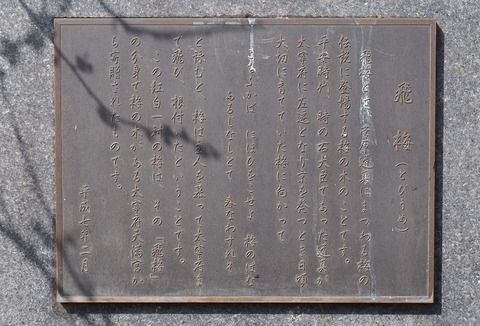 飛梅(とびうめ)
飛梅とは、菅原道真にまつわる梅の
伝説に登場する梅の木のことです。
平安時代、時の右大臣であった道真が
大宰府に左遷となり京を発つとき日頃
大切に育てていた梅に向かって
こちふかば にほひをこせよ 梅のはな
あるじなしとて 春なわすれそ
と詠むと、梅は主人を慕って大宰府まで
て飛び、根付いたということです。
この紅白一対の梅は、その「飛梅」
の分身で梅の木がある太宰府天満宮か
ら寄贈されたものです。
平成十年二月